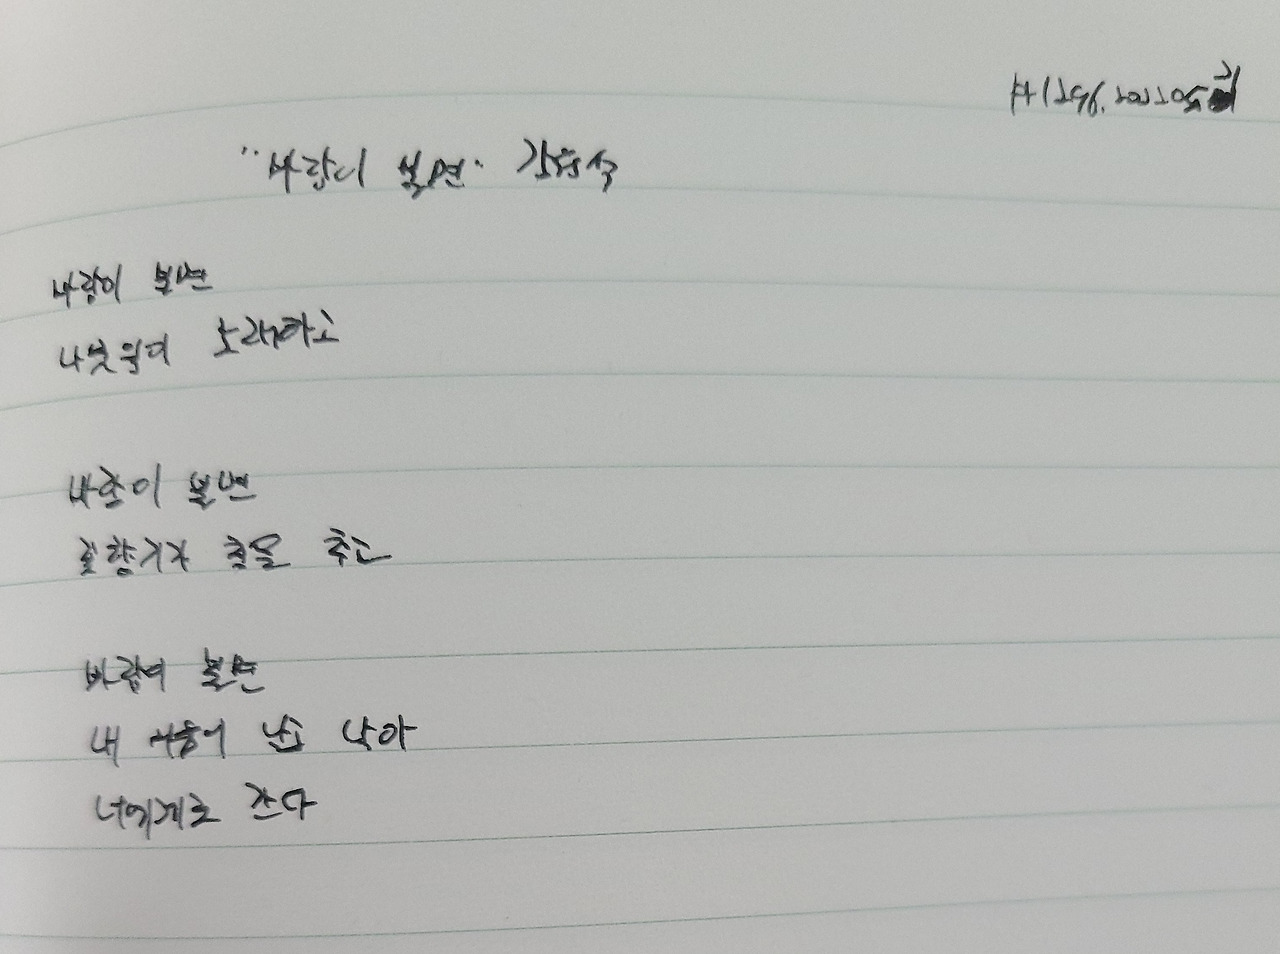 "바람이 불면"
바람이 불면
나뭇잎이 노래하고
바람이 불면
꽃향기가 춤을 추고
바람이 불면
내 마음이 날고 날아
너에게로 간다